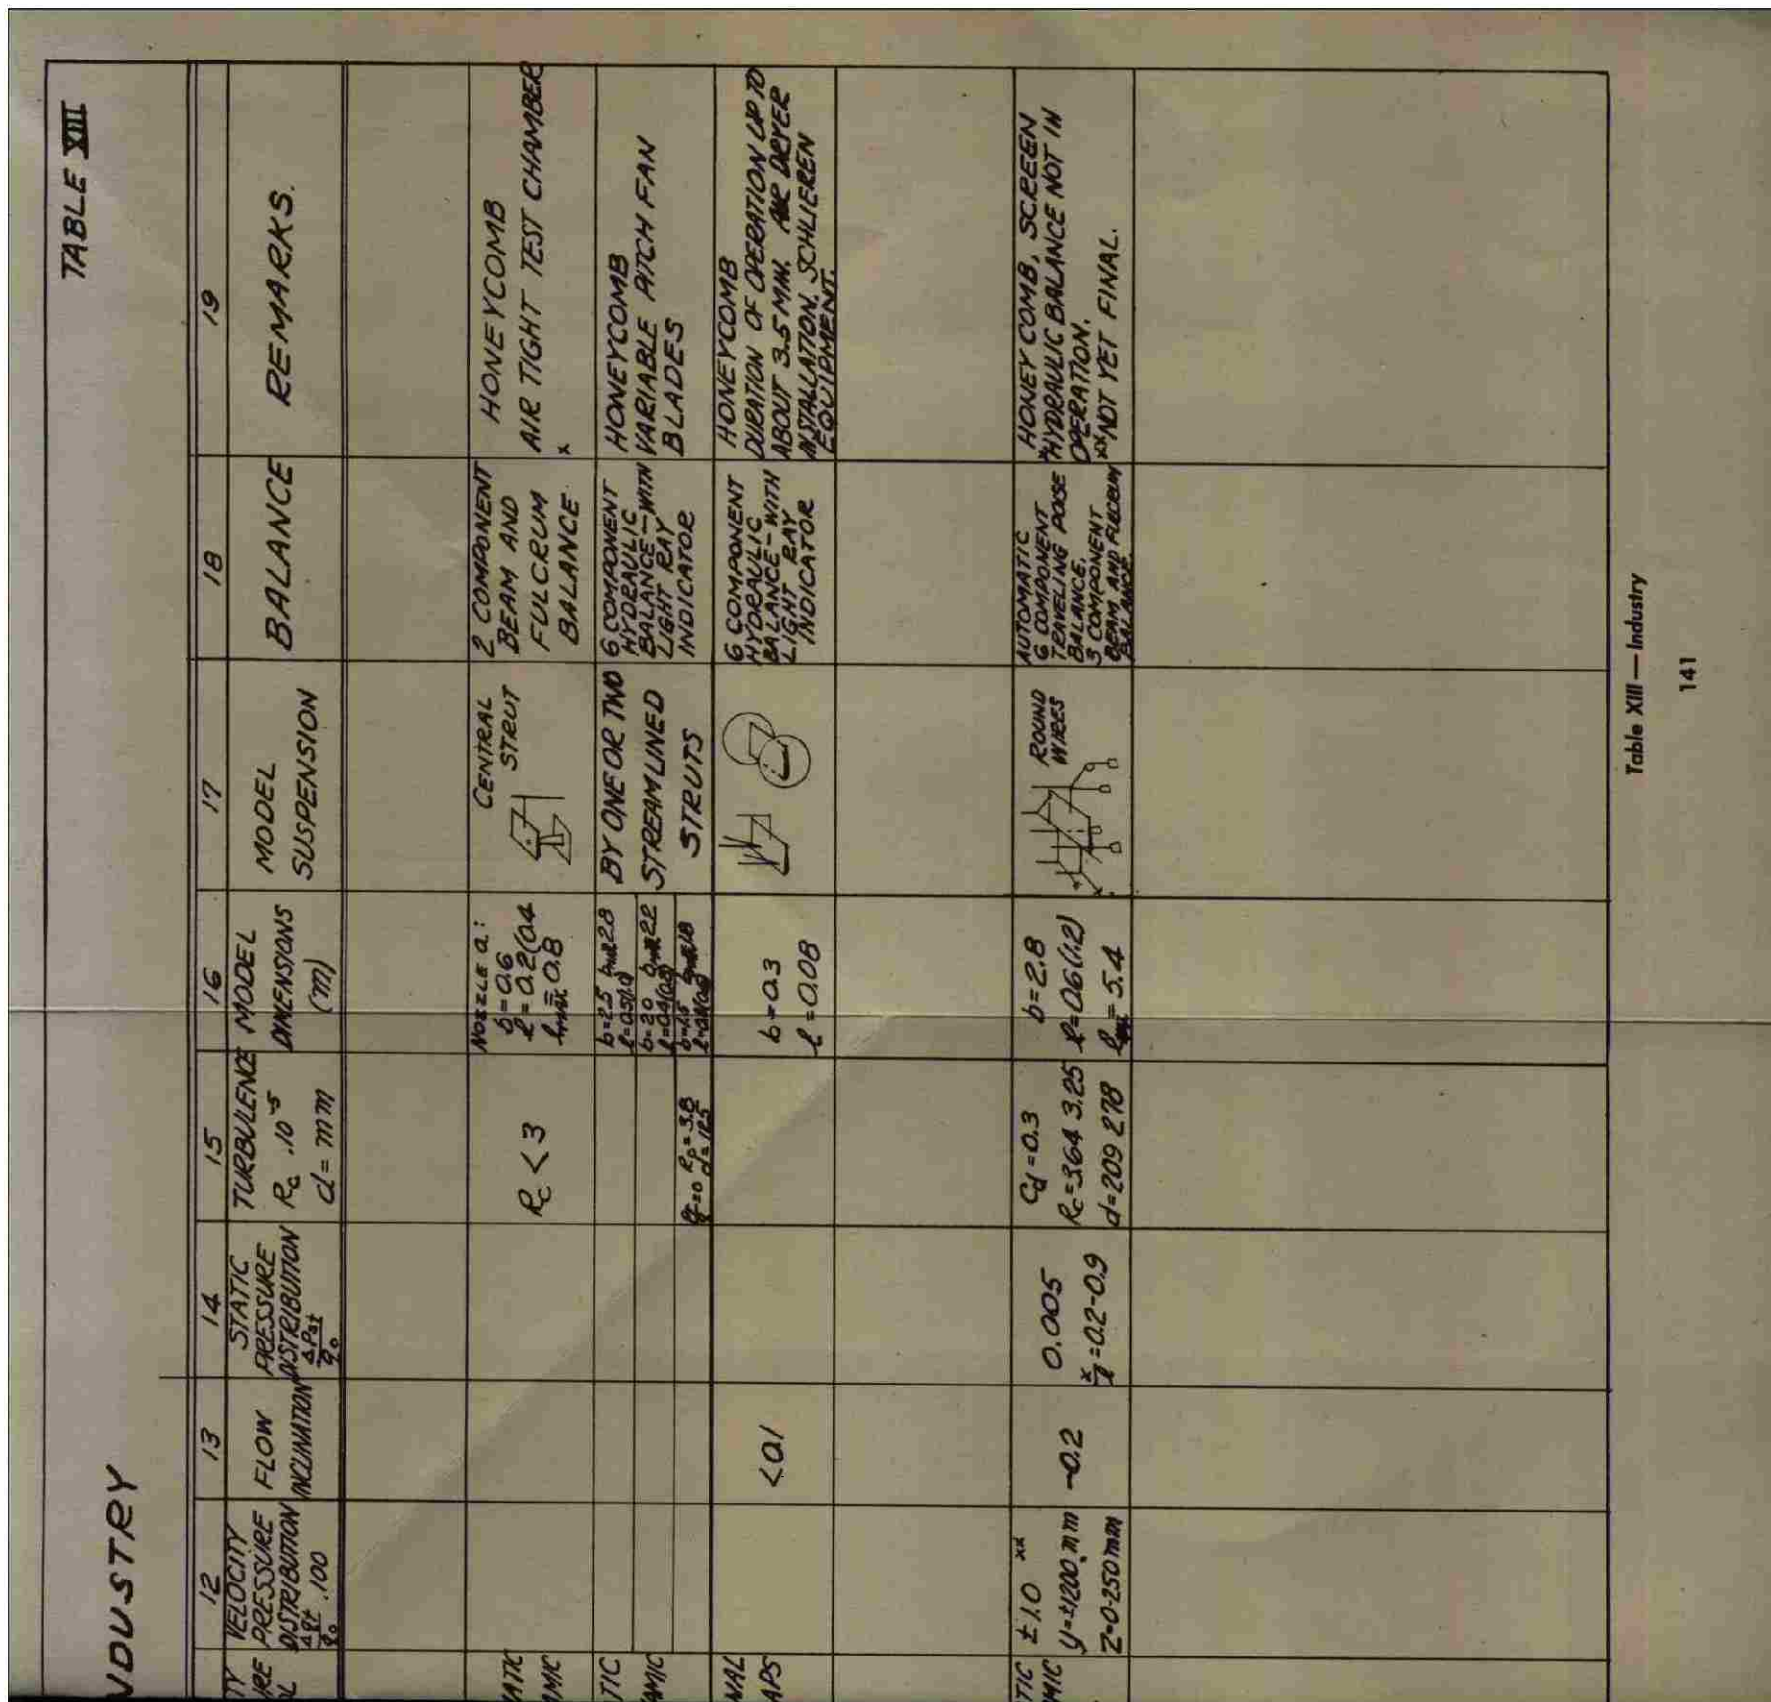 TABLE XIII
NDUSTRY
TY
URE
OL
12
VELOCITY
PRESSURE
DISTRIBUTION
Δqt/q₀ .100
13
FLOW
INCLINATION
14
STATIC
PRESSURE
DISTRIBUTION
ΔPst/q₀
15
TURBULENCE
Rc .10⁻⁵
d = mm
16
MODEL
DIMENSIONS
(m)
17
MODEL
SUSPENSION
18
BALANCE
19
REMARKS.
ATIC
AMIC
Rc < 3
NOZZLE a.:
b=0.6
l=0.2(0.4
lmax=0.8
CENTRAL
STRUT
2 COMPONENT
BEAM AND
FULCRUM
BALANCE
HONEYCOMB
AIR TIGHT TEST CHAMBER
x
TIC
AMIC
=0 Rc=3.8
d=125
b=2.5 bmax 2.8
b=2.0 bmax 2.2
b=1.5
BY ONE OR TWO
STREAMLINED
STRUTS
6 COMPONENT
HYDRAULIC
BALANCE-WITH
LIGHT RAY
INDICATOR
HONEYCOMB
VARIABLE PITCH FAN
BLADES
NAL
APS
<0.1
b=0.3
l=0.08
6 COMPONENT
HYDRAULIC
BALANCE-WITH
LIGHT RAY
INDICATOR
HONEYCOMB
DURATION OF OPERATION UP TO
ABOUT 3.5 MIN. AIR DRYER
INSTALLATION. SCHLIEREN
EQUIPMENT.
TIC
MIC
±1.0 xx
y=±1200 mm
Z=0-250 mm
~0.2
0.005
x/l=0.2-0.9
Cd=0.3
Rc=3.64 3.25
d=209 278
b=2.8
l=0.6(1.2)
l = 5.4
ROUND
WIRES
AUTOMATIC
6 COMPONENT
TRAVELING POISE
BALANCE.
3 COMPONENT
BEAM AND FULCRUM
BALANCE
HONEY COMB, SCREEN
xHYDRAULIC BALANCE NOT IN
OPERATION.
xxNOT YET FINAL.
Table XIII — Industry
141